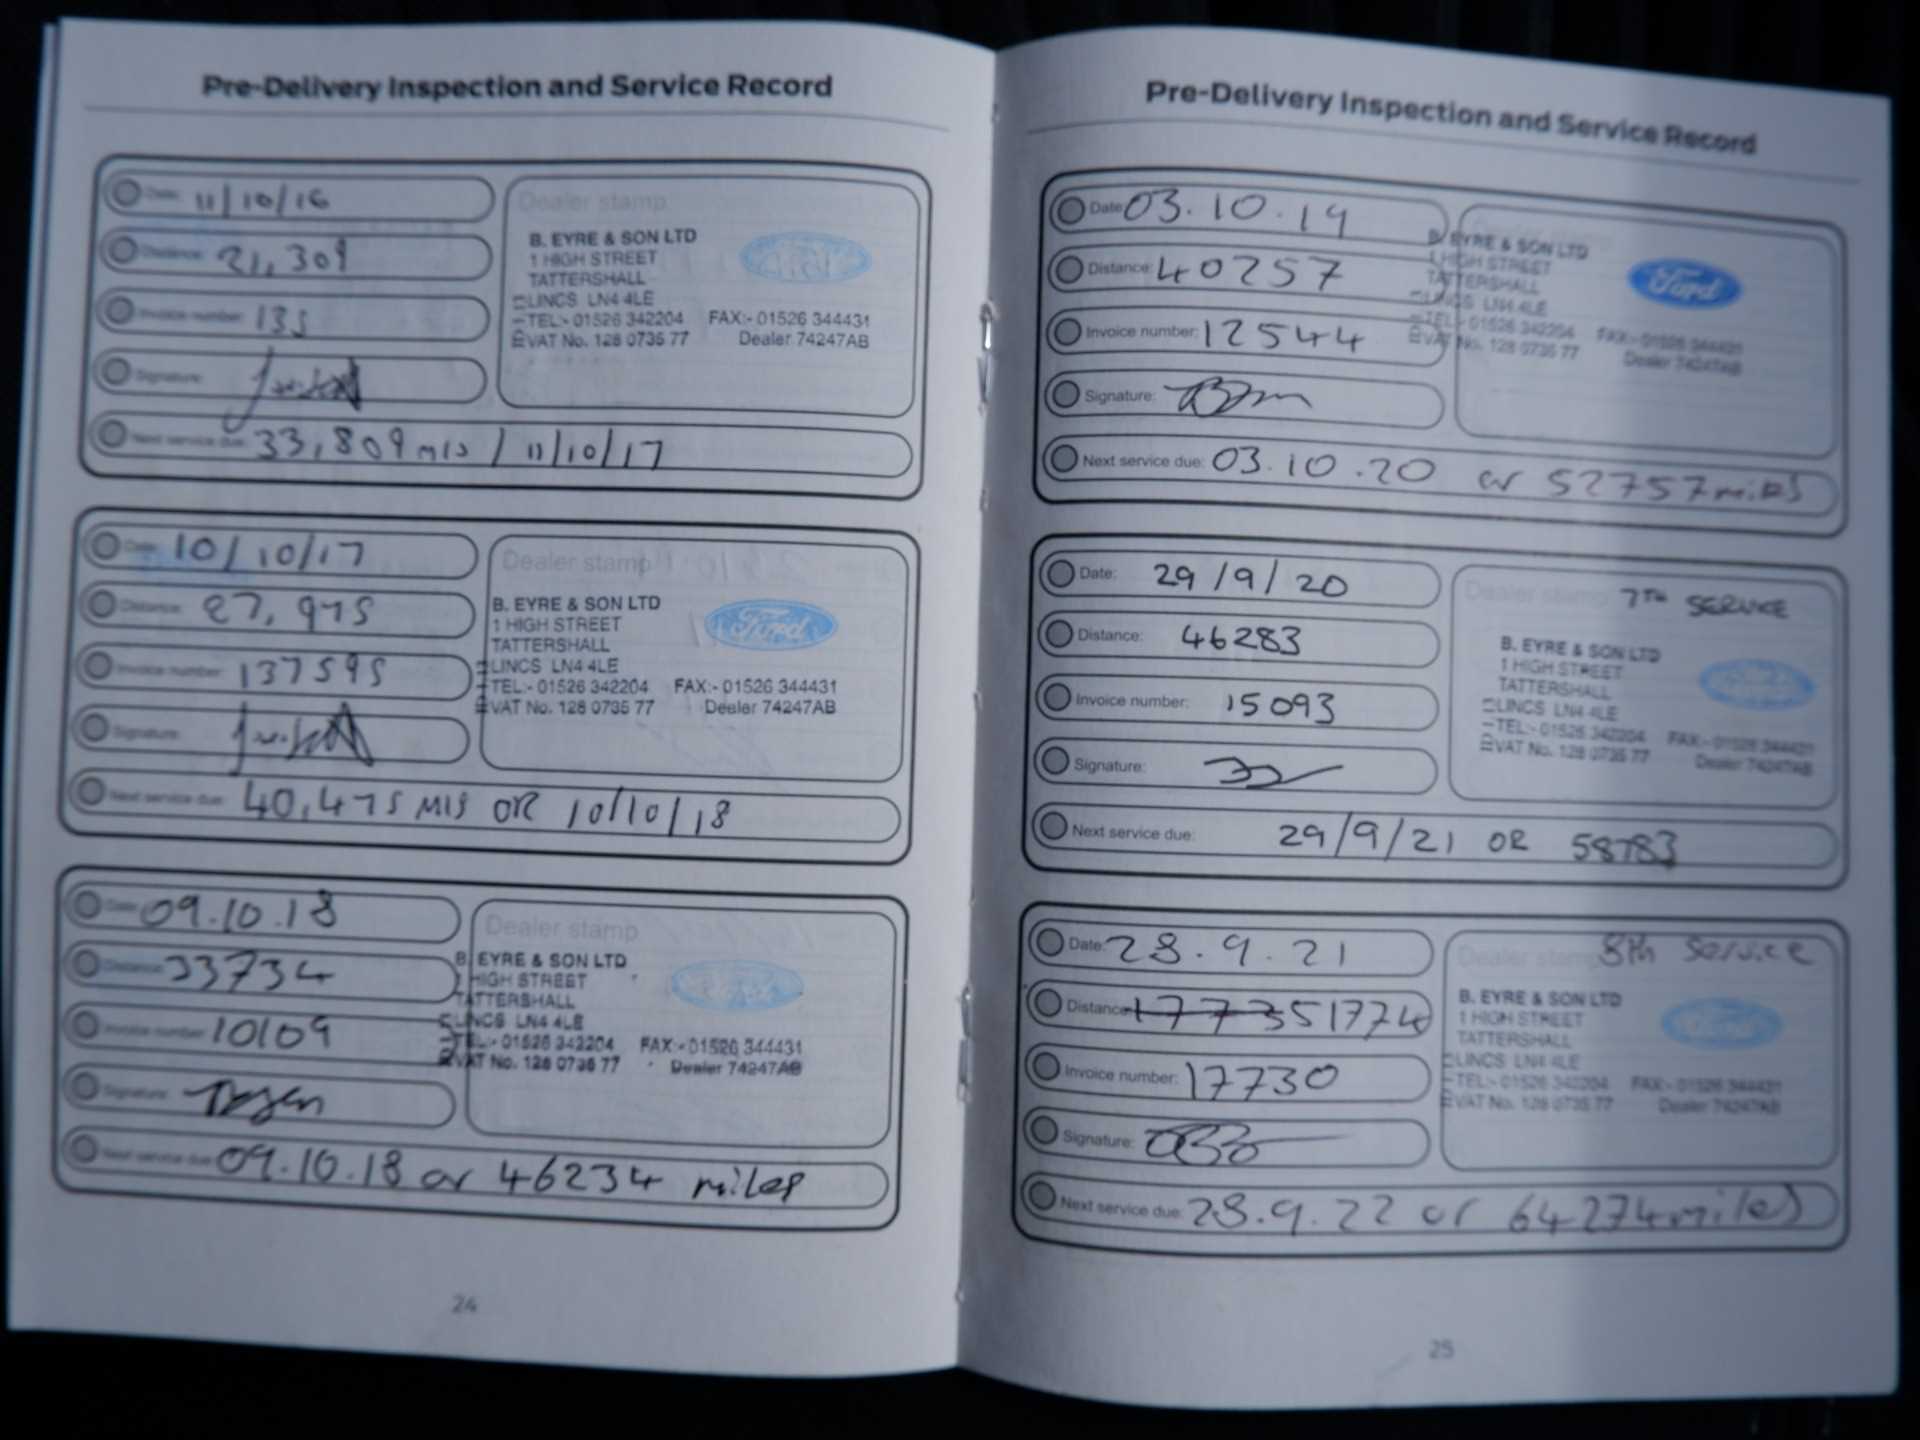 Pre-Delivery Inspection and Service Record
Date: 11/10/16
Distance: 21,309
Invoice number: 135
Signature:
Next service due: 33,809 mls / 11/10/17
Dealer stamp
B. EYRE & SON LTD
1 HIGH STREET
TATTERSHALL
LINCS LN4 4LE
TEL:- 01526 342204 FAX:- 01526 344431
VAT No. 128 0735 77 Dealer 74247AB
Date: 10/10/17
Distance: 27,975
Invoice number: 137595
Signature:
Next service due: 40,475 MLS OR 10/10/18
Dealer stamp
B. EYRE & SON LTD
Ford
1 HIGH STREET
TATTERSHALL
LINCS LN4 4LE
TEL:- 01526 342204 FAX:- 01526 344431
VAT No. 128 0735 77 Dealer 74247AB
Date: 09.10.18
Distance: 33734
Invoice number: 10109
Signature:
Next service due: 09.10.18 or 46234 miles
Dealer stamp
B. EYRE & SON LTD
1 HIGH STREET
TATTERSHALL
LINCS LN4 4LE
TEL:- 01526 342204 FAX:- 01526 344431
VAT No. 128 0735 77 Dealer 74247AB
24
Pre-Delivery Inspection and Service Record
Date: 03.10.19
Distance: 40257
Invoice number: 12544
Signature:
Next service due: 03.10.20 or 52757 miles
B. EYRE & SON LTD
Ford
1 HIGH STREET
TATTERSHALL
LINCS LN4 4LE
TEL:- 01526 342204 FAX:- 01526 344431
VAT No. 128 0735 77 Dealer 74247AB
Date: 29/9/20
Distance: 46283
Invoice number: 15093
Signature:
Next service due: 29/9/21 OR 58783
Dealer stamp 7TH SERVICE
B. EYRE & SON LTD
1 HIGH STREET
TATTERSHALL
LINCS LN4 4LE
TEL:- 01526 342204 FAX:- 01526 344431
VAT No. 128 0735 77 Dealer 74247AB
Date: 28.9.21
Distance: 17735 51774
Invoice number: 17730
Signature:
Next service due: 28.9.22 or 64274 miles
Dealer stamp 8th Service
B. EYRE & SON LTD
1 HIGH STREET
TATTERSHALL
LINCS LN4 4LE
TEL:- 01526 342204 FAX:- 01526 344431
VAT No. 128 0735 77 Dealer 74247AB
25